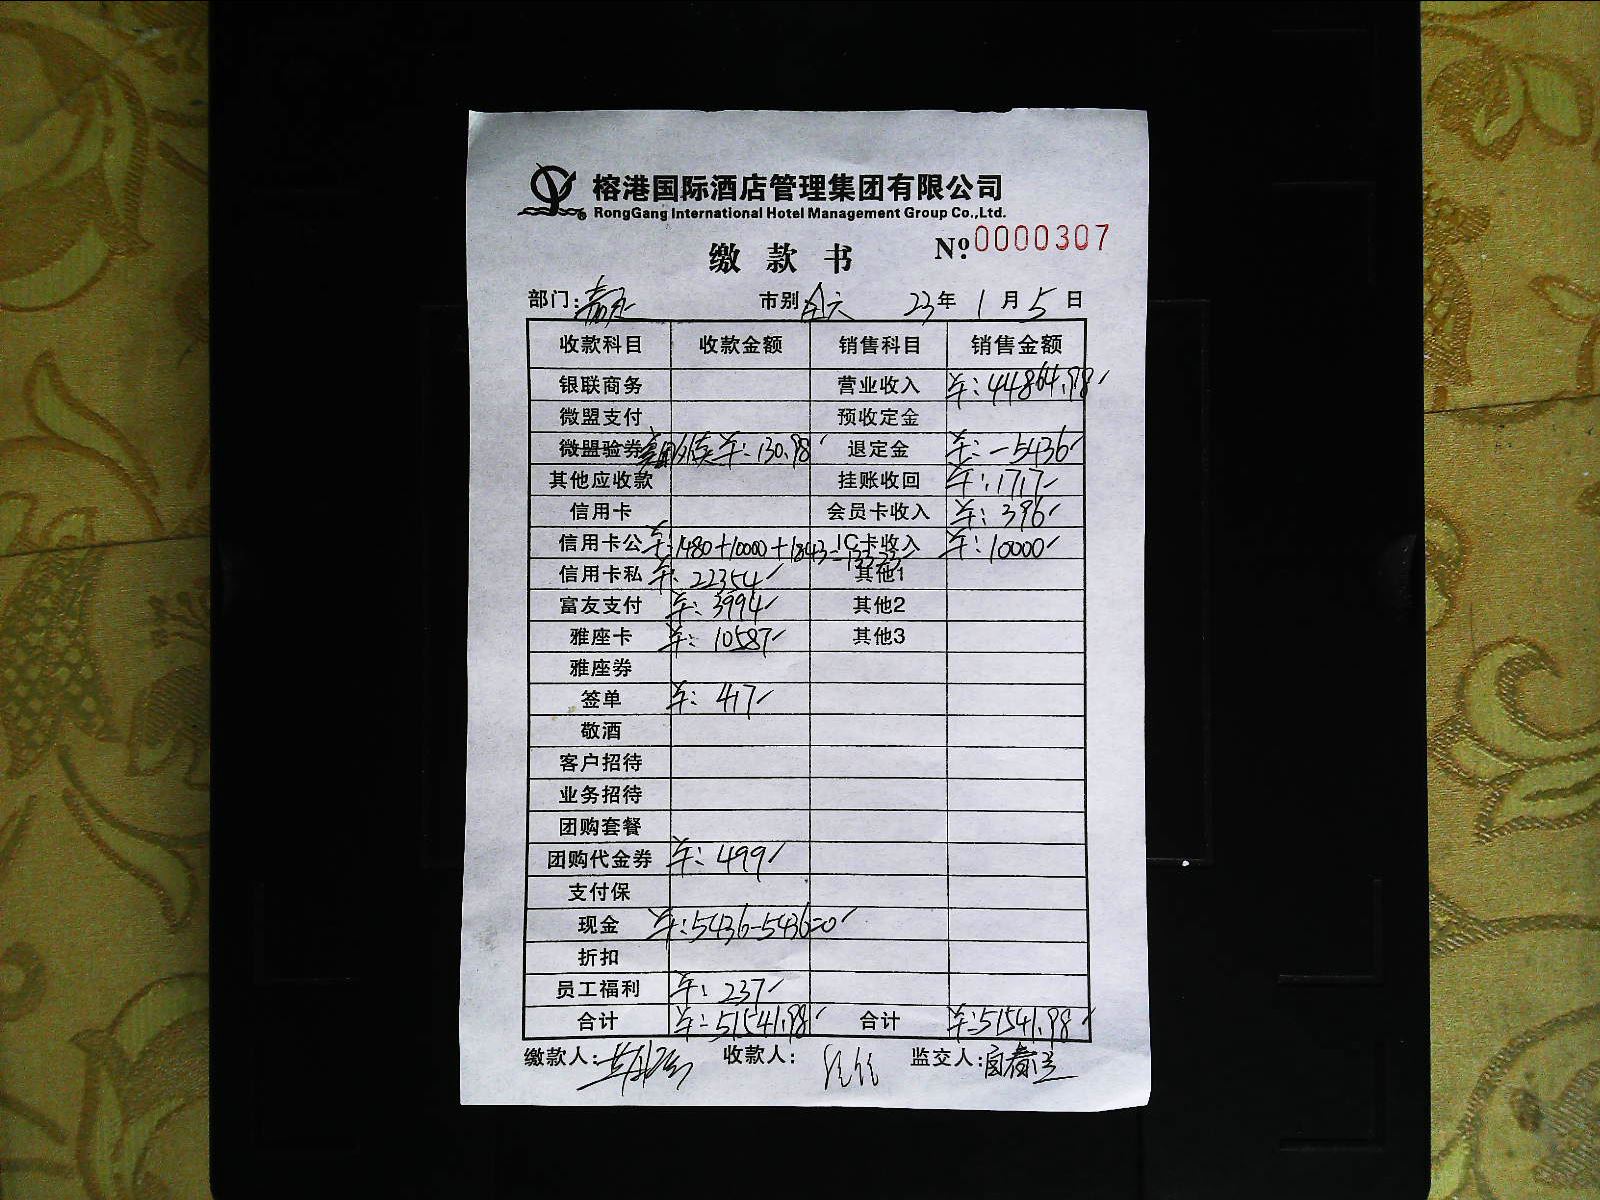 榕港国际酒店管理集团有限公司
RongGang International Hotel Management Group Co.,Ltd.
缴款书 Nº:0000307
部门: 市别 23年 1月 5日
收款科目 收款金额 销售科目 销售金额
银联商务 营业收入 ¥:44864.98
微盟支付 预收定金
微盟验券 美团外卖 ¥:130.98 退定金 ¥:-5436
其他应收款 挂账收回 ¥:1717
信用卡 会员卡收入 ¥:396
信用卡公 ¥:1480+10000+1843=13323 IC卡收入 ¥:10000
信用卡私 ¥:22354 其他1
富友支付 ¥:3994 其他2
雅座卡 ¥:10587 其他3
雅座券
签单 ¥:417
敬酒
客户招待
业务招待
团购套餐
团购代金券 ¥:499
支付保
现金 ¥:5436-5436=0
折扣
员工福利 ¥:237
合计 ¥:51541.98 合计 ¥:51541.98
缴款人: 收款人: 监交人: